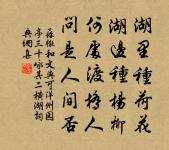 湖里種荷花
湖邊種楊柳
何處渡橋人
問是人間否
蘇轍和文與可洋州園
亭三十詠其二橫湖詞
典網